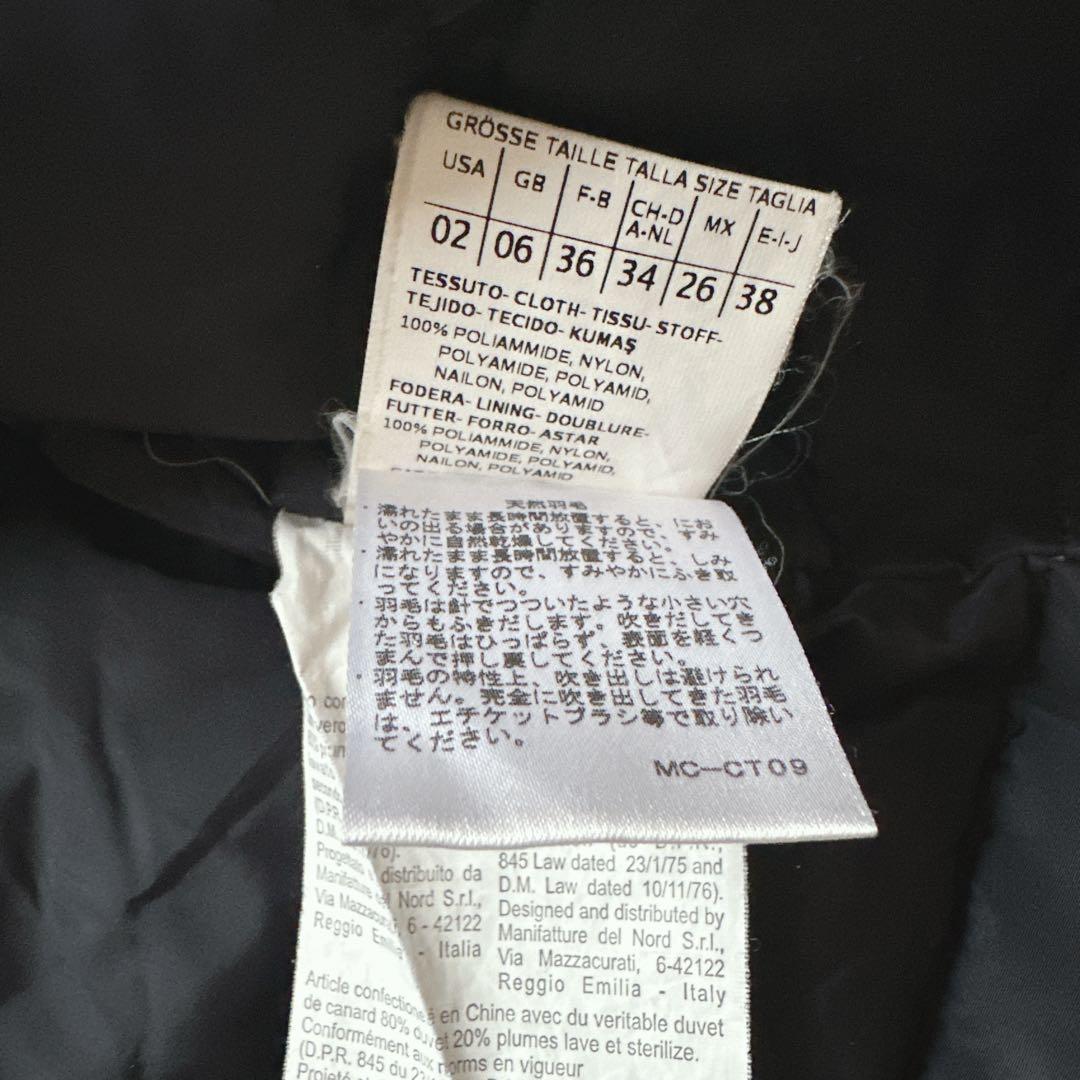 GRÖSSE TAILLE TALLA SIZE TAGLIA
USA GB F-B CH-D A-NL MX E-I-J
02 06 36 34 26 38
TESSUTO- CLOTH- TISSU- STOFF-
TEJIDO- TECIDO- KUMAŞ
100% POLIAMMIDE, NYLON,
POLYAMIDE, POLYAMID,
NAILON, POLYAMID
FODERA- LINING- DOUBLURE-
FUTTER- FORRO- ASTAR
100% POLIAMMIDE, NYLON,
POLYAMIDE, POLYAMID,
NAILON, POLYAMID
天然羽毛
・濡れたまま長時間放置すると、にお
いの出る場合がありますので、すみ
やかに自然乾燥してください。
・濡れたまま長時間放置すると、しみ
になりますので、すみやかにふき取
ってください。
・羽毛は針でつついたような小さい穴
からもふきだします。吹きだしてき
た羽毛はひっぱらず、表面を軽くつ
まんで押し戻してください。
・羽毛の特性上、吹き出しは避けられ
ません。完全に吹き出してきた羽毛
は、エチケットブラシ等で取り除い
てください。
MC-CT09
(D.P.R.
D.M.
Progettato distribuito da
Manifatture del Nord S.r.l.,
Via Mazzacurati, 6 - 42122
Reggio Emilia - Italia
845 Law dated 23/1/75 and
D.M. Law dated 10/11/76).
Designed and distributed by
Manifatture del Nord S.r.l.,
Via Mazzacurati, 6-42122
Reggio Emilia - Italy
Article confectionné en Chine avec du veritable duvet
de canard 80% duvet 20% plumes lave et sterilize.
Conformément aux norms en vigueur
(D.P.R. 845 du